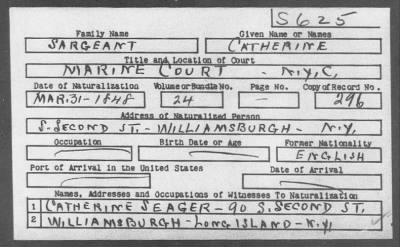 S625
Family Name Given Name or Names
SARGEANT CATHERINE
Title and Location of Court
MARINE COURT - N.Y.C.
Date of Naturalization Volume or Bundle No. Page No. Copy of Record No.
MAR. 31-1848 24 — 296
Address of Naturalized Person
S. SECOND ST. - WILLIAMSBURGH - N.Y.
Occupation Birth Date or Age Former Nationality
ENGLISH
Port of Arrival in the United States Date of Arrival
Names, Addresses and Occupations of Witnesses To Naturalization
1 CATHERINE SEAGER - 90 S. SECOND ST.
2 WILLIAMSBURGH - LONG ISLAND - N.Y.